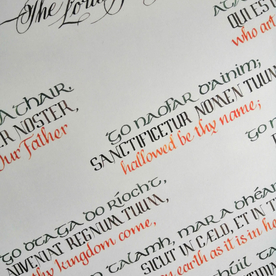 The Lord
QUI ES
who art
athair,
ER NOSTER,
Our Father
go naofar d'ainim;
SANCTIFICETUR NOMEN TUUM
hallowed be thy name;
go dtaga do ríocht,
DVENIAT REGNUM TUUM,
thy kingdom come,
talamh, mar a dhéa
SICUT IN CÆLO, ET IN T
earth as it is in he